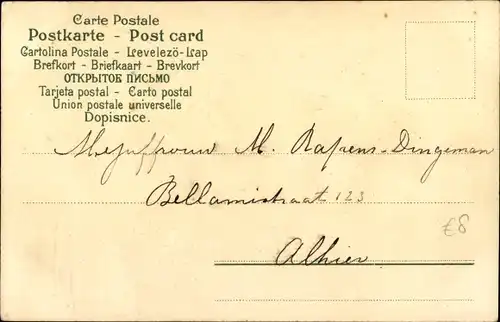 Carte Postale
Postkarte - Post card
Cartolina Postale - Levelező-Lap
Brefkort - Briefkaart - Brevkort
ОТКРЫТОЕ ПИСЬМО
Tarjeta postal - Carto postal
Union postale universelle
Dopisnice.
Mejuffrouw M. Rapens-Dingeman
Bellamistraat 123
Alhier
£8